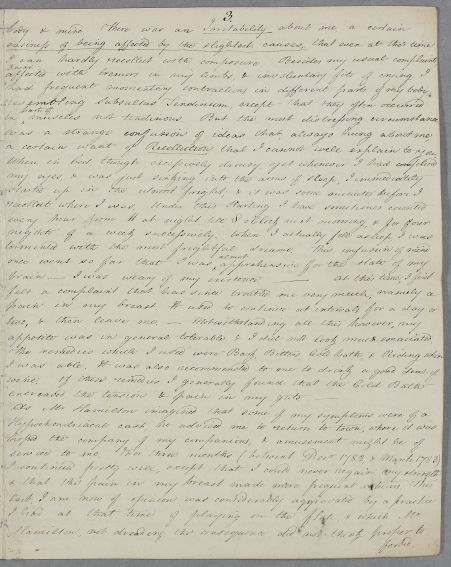 3.
body & mind. There was an Irritability about me, a certain
easiness of being affected by the slightest causes, that even at this time
I can hardly recollect with composure. Besides my usual complaints
affected with tremors in my limbs, & involuntary fits of crying. I
had frequent momentary contractions in different parts of my body,
resembling Subsultus Tendinum, except that they often occurred
in muscles not tendinous. But the most distressing circumstance
was a strange confusion of ideas that always hung about me
a certain want of Recollection that I cannot well explain to you.
When in bed, though excessively drowsy, yet whenever I had composed
my eyes, & was just sinking into the arms of sleep, I immediately
started up in the utmost fright & it was some minutes before I
recollect where I was. Under this starting I have sometimes counted
every hour from 11 at night till 8 o'clock next morning & for four
nights of a week successively. When I actually fell asleep I was
tormented with the most frightful dreams. This confusion of mind
once went so far that I was almost apprehensive for the state of my
brain. — I was weary of my existence — At this time, I first
felt a complaint that has since troubled me very much, namely a
pain in my breast. It used to continue at intervals for a day or
two, & then leave me. — Notwithstanding all this however, my
appetite was in general tolerable & I did not look much emaciated
The remedies which I used were Bark, Bitters, Cold bath, & Riding when
I was able. It was also recommended to me to drink a good deal of
wine. Of these remedies I generally found that the Cold Bath
encreased the tension & pain in my guts —
As Mr Hamilton imagined that some of my symptoms were of a
Hypochondriacal cast he advised me to return to town, where it was
hoped the company of my companions, & amusement might be of
service to me. For three months (betwixt Decr 1782 & March 1783)
I continued pretty well, except that I could never regain my strength
& that the pain in my breast made more frequent This
last, I am now of opinion was considerably aggravated by a practice
I had at that time of playing on the flute, & which Mr
Hamilton, not dreading the consequence, did not think proper to
forbid.